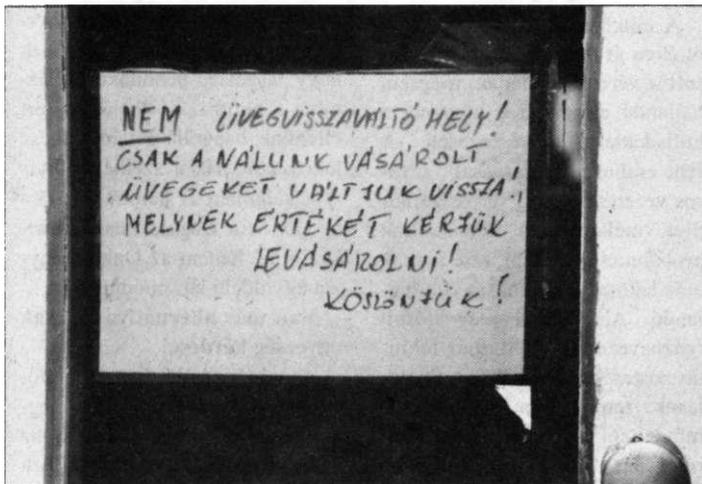 NEM ÜVEGVISSZAVÁLTÓ HELY!
CSAK A NÁLUNK VÁSÁROLT
ÜVEGEKET VÁLTJUK VISSZA!
MELYNEK ÉRTÉKÉT KÉRJÜK
LEVÁSÁROLNI!
KÖSZÖNJÜK!